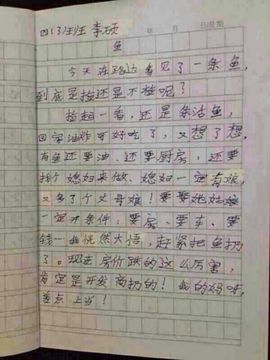 四(3)班 李硕
年 月 日星期
鱼
今天在路边看见了一条鱼,
到底是捡还是不捡呢?
捡起一看,还是条活鱼,
回家油炸可好吃了,又想了想,
有鱼还要油、还要厨房,还要
找个媳妇来做、媳妇一定有娘,
又多了个丈母娘!要娶她姑娘
一定开条件:要房、要车、要
钱…我恍然大悟,赶紧把鱼扔
了。现在房价跌的这么厉害,
肯定是开发商扔的!我的妈呀,
差点上当!